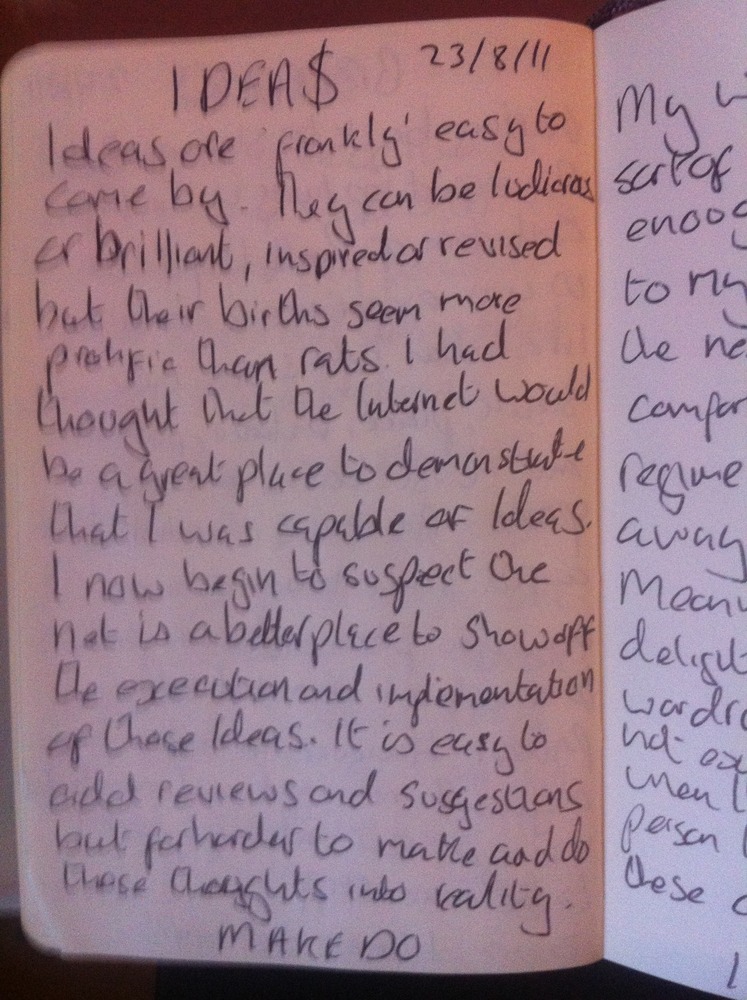 23/8/11
IDEA$
Ideas are 'frankly' easy to
come by. They can be ludicrous
or brilliant, inspired or revised
but their births seem more
prolific than rats. I had
thought that the Internet would
be a great place to demonstrate
that I was capable of Ideas.
I now begin to suspect the
net is a better place to show off
the execution and implementation
of those Ideas. It is easy to
add reviews and suggestions
but far harder to make and do
those thoughts into reality.
MAKE DO
My
sort of
to my
the
away
these